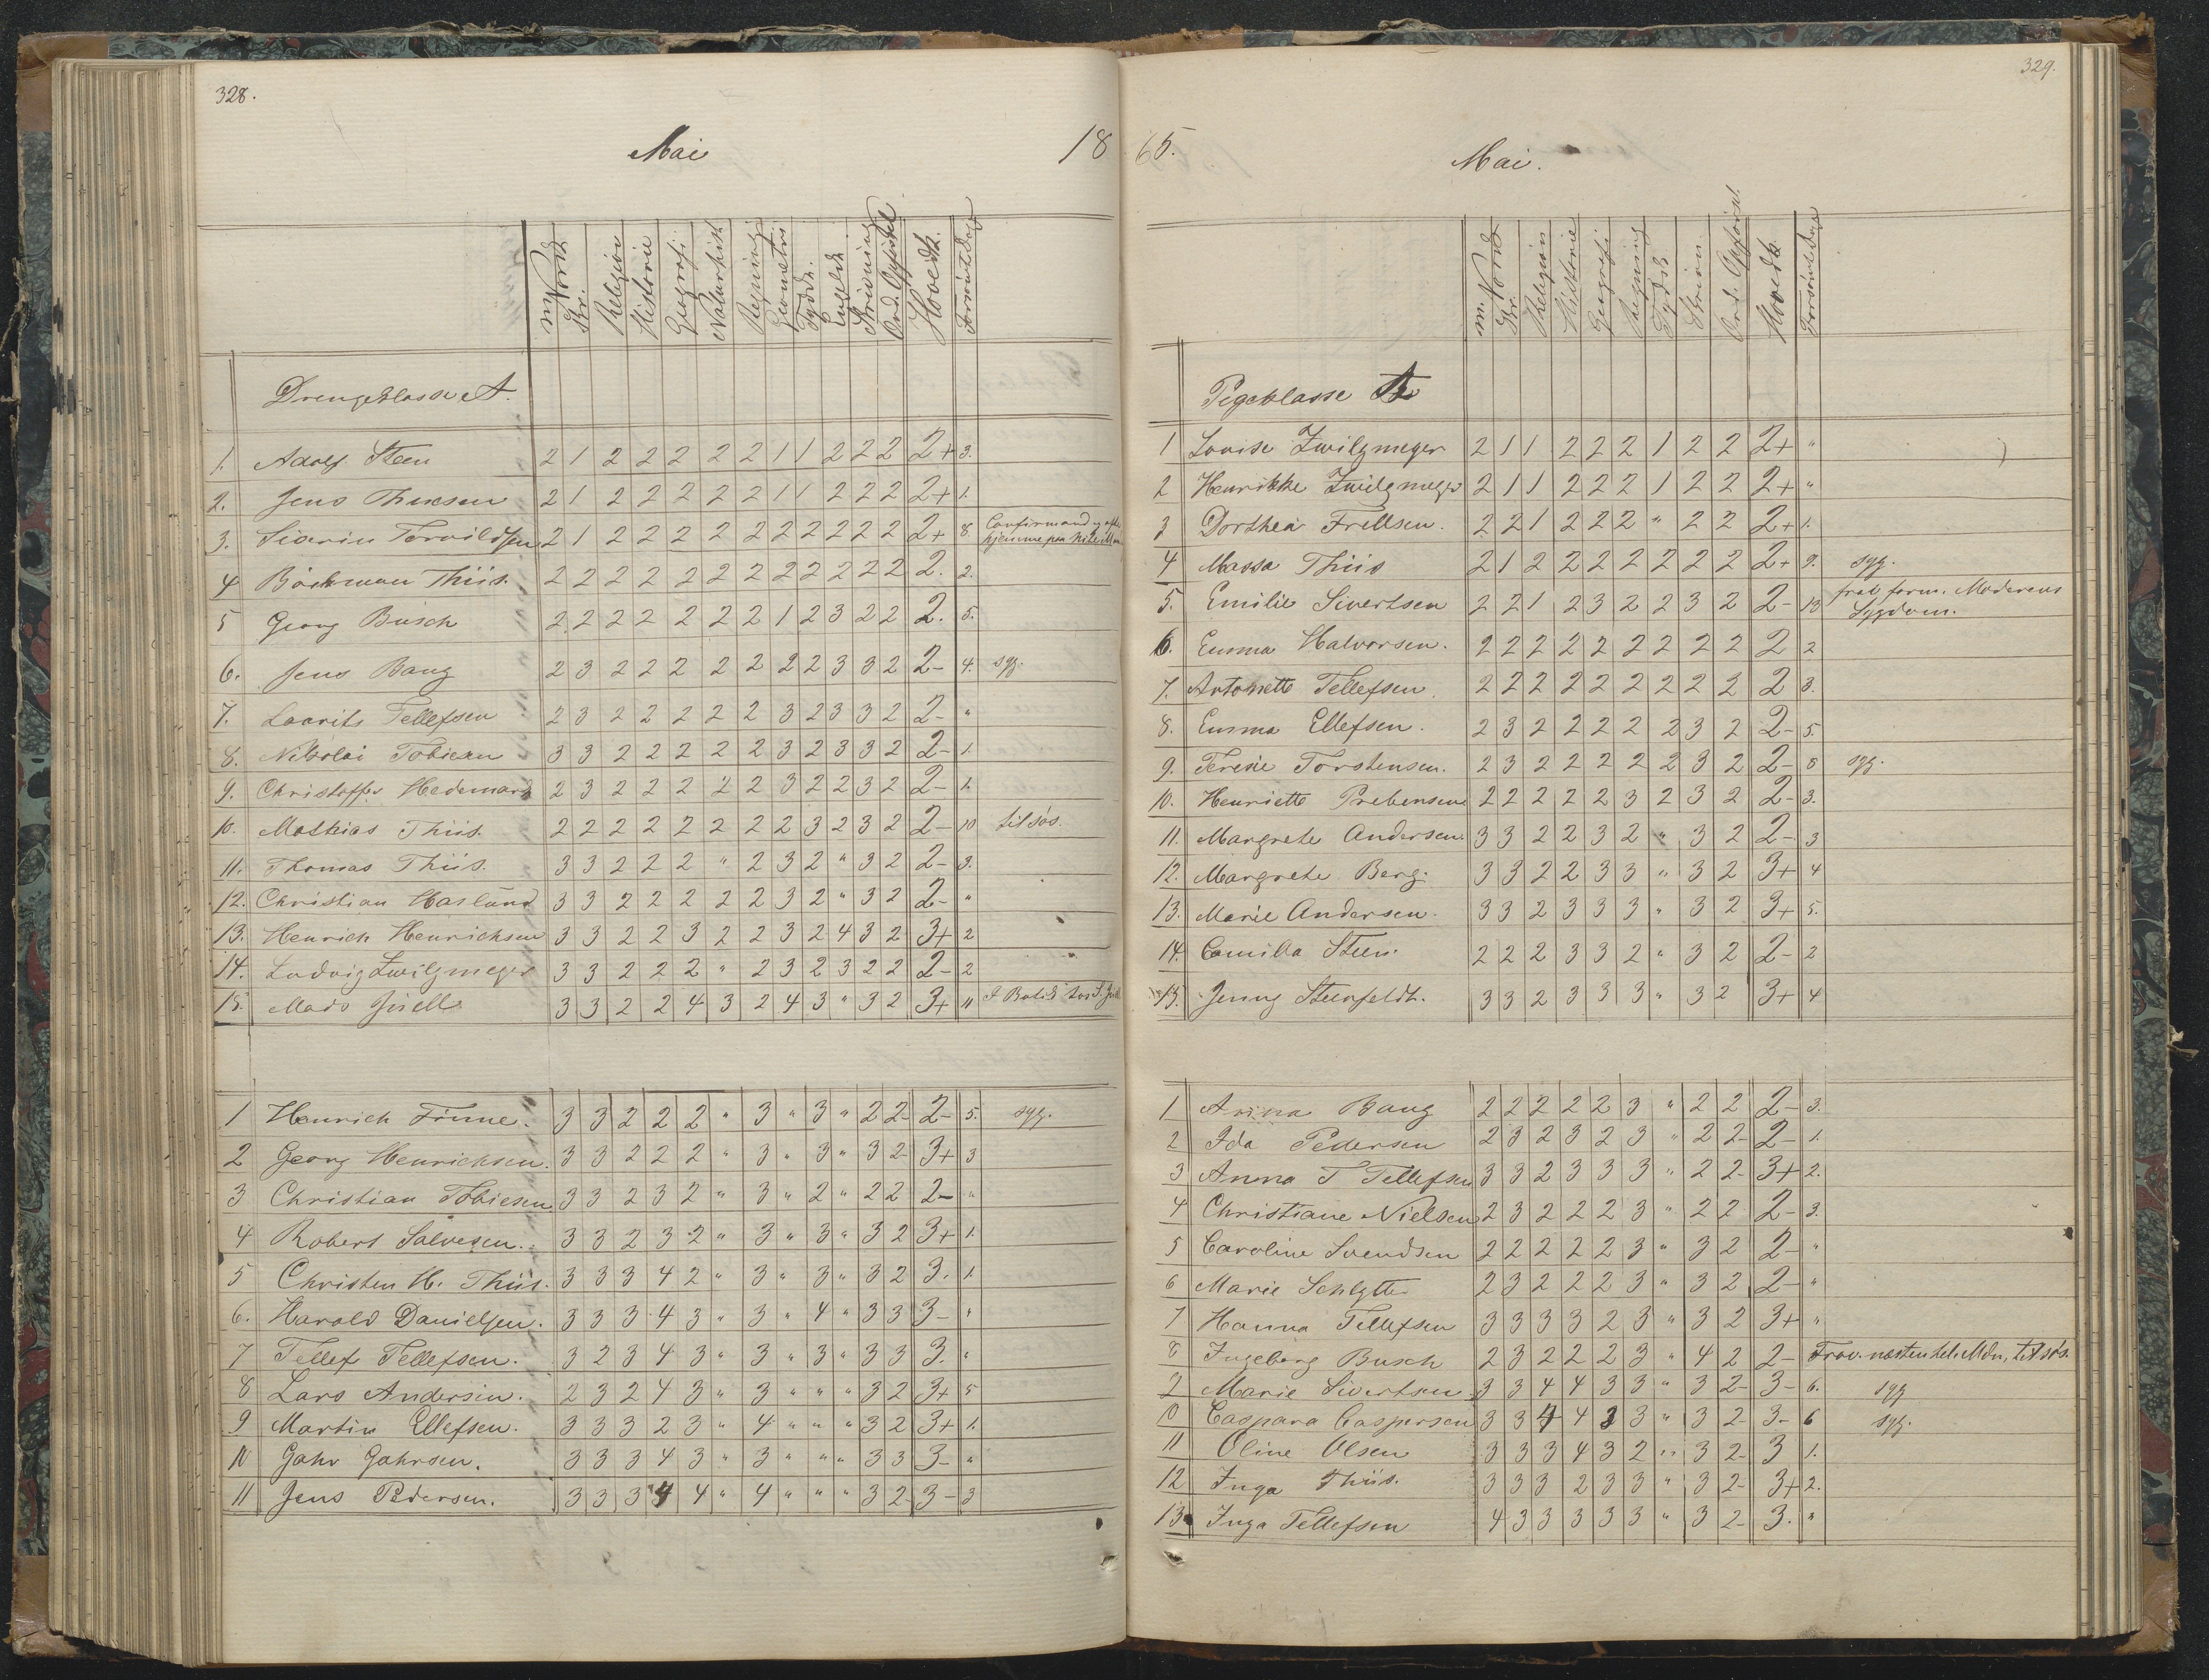 328.
Mai
18
m. Norsk Skr. Religion Historie Geografi Naturhist Regning Geometri Tydsk. Engelsk Skrivning Ord. Opførsel Hovedk. Forsømt Dage
Drengeklasse A.
1. Adolf Steen 2 1 2 2 2 2 2 1 1 2 2 2 2+ 3.
2. Jens Thuesen 2 1 2 2 2 2 2 1 1 2 2 2 2+ 1.
3. Severin Torvildsen 2 1 2 2 2 2 2 2 2 2 2 2 2+ 8. Confirmand og
hjemme paa
4 Böckman Thiis. 2 2 2 2 2 2 2 2 2 2 2 2 2. 2.
5 Georg Busch 2 2 2 2 2 2 2 1 2 3 2 2 2. 5.
6. Jens Bang 2 3 2 2 2 2 2 2 2 3 3 2 2- 4. syg.
7. Laurits Tellefsen 2 3 2 2 2 2 2 3 2 3 3 2 2- "
8. Nikolai Tobiesen 3 3 2 2 2 2 2 3 2 3 3 2 2- 1.
9. Christoffer Hedemark 2 3 2 2 2 2 2 3 2 2 3 2 2- 1.
10. Mathias Thiis. 2 2 2 2 2 2 2 2 3 2 3 2 2- 10 tilsøs.
11. Thomas Thiis. 3 3 2 2 2 " 2 3 2 " 3 2 2- 3.
12. Christian Haslund 3 3 2 2 2 2 2 3 2 " 3 2 2- "
13. Henrich Henrichsen 3 3 2 2 3 2 2 3 2 4 3 2 3+ 2
14. Ludvig Zwilgmeyer 3 3 2 2 2 " 2 3 2 3 2 2 2- 2
15. Mads Juell 3 3 2 2 4 3 2 4 3 " 3 2 3+ 11
1 Henrich Fönne. 3 3 2 2 2 " 3 " 3 " 2 2 2- 5. syg.
2 Georg Henrichsen. 3 3 2 2 2 " 3 " 3 " 3 2 3+ 3
3 Christian Tobiesen 3 3 2 3 2 " 3 " 2 " 2 2 2- "
4 Robert Salvesen. 3 3 2 3 2 " 3 " 3 " 3 2 3+ 1.
5 Christen H. Thiis. 3 3 3 4 2 " 3 " 3 " 3 2 3. 1.
6. Harald Danielsen. 3 3 3 4 3 " 3 " 4 " 3 3 3- "
7 Tellef Tellefsen. 3 2 3 4 3 " 3 " 3 " 3 3 3. "
8 Lars Andersen. 2 3 2 4 3 " 3 " " " 3 2 3+ 5
9 Martin Ellefsen. 3 3 3 2 3 " 4 " " " 3 2 3+ 1.
10 Gahr Gahrsen. 3 3 3 4 3 " 3 " " " 3 3 3- "
11 Jens Pedersen. 3 3 3 4 4 " 4 " " " 3 2 3- 3
329.
65.
Mai.
m. Norsk Skr. Religion Historie Geografi Regning Tydsk Skrivn. Ord. Opførsel. Hovedk. Forsømt Dage
Pigeklasse A
1 Louise Zwilgmeyer 2 1 1 2 2 2 1 2 2 2+ "
2 Henrikke Zwilgmeyer 2 1 1 2 2 2 1 2 2 2+ "
3 Dorthea Frellsen. 2 2 1 2 2 2 " 2 2 2+ 1.
4 Massa Thiis 2 1 2 2 2 2 2 2 2 2+ 9. syg.
5. Emilie Sivertsen 2 2 1 2 3 2 2 3 2 2- 13 frav. form. Moderens
Sygdom.
6. Emma Halvorsen. 2 2 2 2 2 2 2 2 2 2 2
7. Antonette Tellefsen. 2 2 2 2 2 2 2 2 2 2 3.
8. Emma Ellefsen. 2 3 2 2 2 2 2 3 2 2- 5
9. Teresie Torstensen. 2 3 2 2 2 2 2 3 2 2- 8 syg.
10. Henriette Prebensen 2 2 2 2 2 3 2 3 2 2- 3.
11. Margrete Andersen. 3 3 2 2 3 2 " 3 2 2- 3
12. Margrete Berg. 3 3 2 2 3 3 " 3 2 3+ 4
13. Marie Andersen. 3 3 2 3 3 3 " 3 2 3+ 5.
14. Camilla Steen. 2 2 2 3 3 2 " 3 2 2- 2
15. Jenny Steenfeldt. 3 3 2 3 3 3 " 3 2 3+ 4
1 Anna Bang 2 2 2 2 2 3 " 2 2 2- 3.
2 Ida Pedersen 2 3 2 3 2 3 " 2 2 2- 1.
3 Anna T Tellefsen 3 3 2 3 3 3 " 2 2 3+ 2.
4 Christiane Nielsen 2 3 2 2 2 3 " 2 2 2- 3.
5 Caroline Svendsen 2 2 2 2 2 3 " 3 2 2- "
6 Marie Schlytter 2 3 2 2 2 3 " 3 2 2- "
7 Hanna Tellefsen 3 3 3 3 2 3 " 3 2 3+ "
8 Ingeborg Busch 2 3 2 2 2 3 " 4 2 2- Frav. næsten hele Mdn, tilsøs.
9 Marie Sivertsen 3 3 4 4 3 3 " 3 2 3- 6. syg
10 Caspara Caspersen 3 3 4 4 3 3 " 3 2 3- 6 syg.
11 Oline Olsen 3 3 3 4 3 2 " 3 2 3 1.
12 Inga Thiis. 3 3 3 2 3 3 " 3 2 3+ 2.
13 Inga Tellefsen 4 3 3 3 3 3 " 3 2 3. "